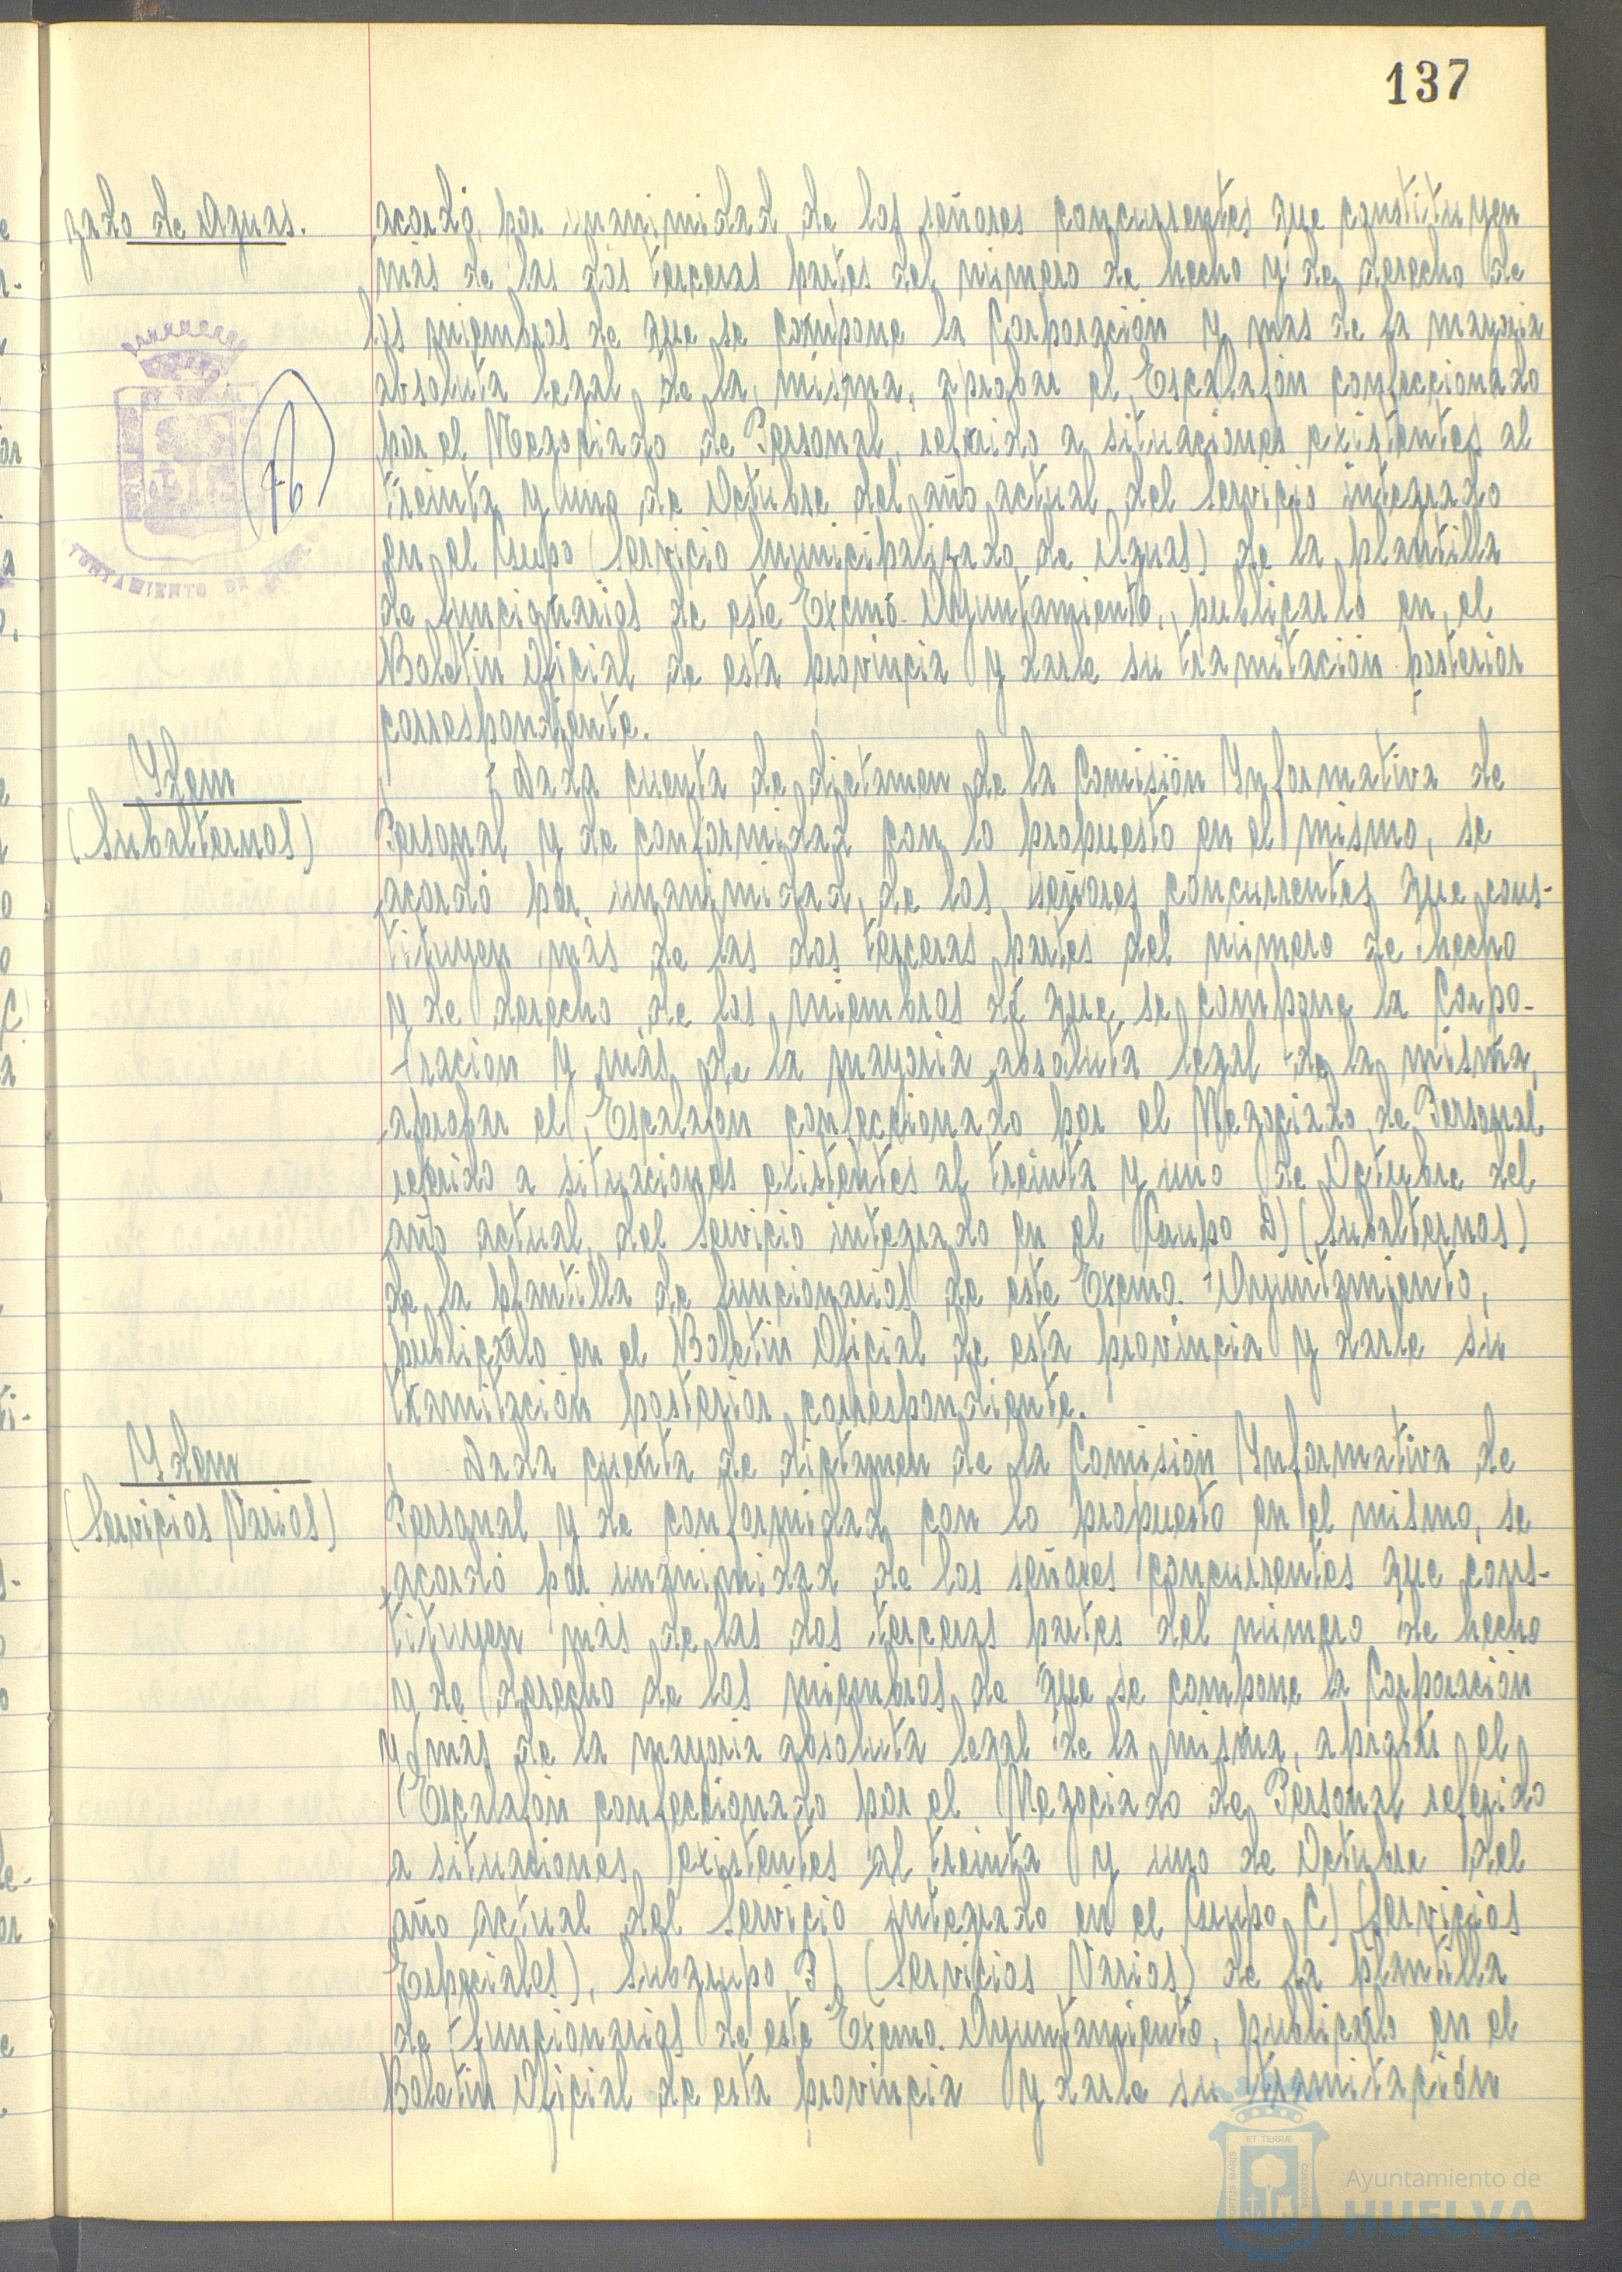 137
zado de Aguas.
acordó, por unanimidad de los señores concurrentes que constituyen
más de las dos terceras partes del número de hecho y de derecho de
los miembros de que se compone la Corporación y más de la mayoría
absoluta legal de la misma, aprobar el Escalafón confeccionado
por el Negociado de Personal, referido a situaciones existentes al
treinta y uno de Octubre del año actual del Servicio integrado
en el Grupo (Servicio Municipalizado de Aguas) de la plantilla
de funcionarios de este Excmo. Ayuntamiento, publicarlo en el
Boletín Oficial de esta provincia y darle su tramitación posterior
correspondiente.
Ydem
(Subalternos)
Dada cuenta de dictamen de la Comisión Ynformativa de
Personal y de conformidad con lo propuesto en el mismo, se
acordó por unanimidad, de los señores concurrentes que cons-
tituyen más de las dos terceras partes del número de hecho
y de derecho de los miembros de que se compone la Corpo-
ración y más de la mayoría absoluta legal de la misma,
aprobar el Escalafón confeccionado por el Negociado de Personal
referido a situaciones existentes al treinta y uno de Octubre del
año actual, del Servicio integrado en el Grupo D) (Subalternos)
de la plantilla de funcionarios de este Excmo. Ayuntamiento,
publicarlo en el Boletín Oficial de esta provincia y darle su
tramitación posterior correspondiente.
Ydem
(Servicios Varios)
Dada cuenta de dictamen de la Comisión Ynformativa de
Personal y de conformidad con lo propuesto en el mismo, se
acordó por unanimidad de los señores concurrentes que cons-
tituyen más de las dos terceras partes del número de hecho
y de derecho de los miembros de que se compone la Corporación
y más de la mayoría absoluta legal de la misma, aprobar el
Escalafón confeccionado por el Negociado de Personal referido
a situaciones existentes al treinta y uno de Octubre del
año actual del Servicio integrado en el Grupo C) (Servicios
Especiales), Subgrupo (Servicios Varios) de la plantilla
de funcionarios de este Excmo. Ayuntamiento, publicarlo en el
Boletín Oficial de esta provincia y darle su tramitación
AYUNTAMIENTO DE
ET TERRAE
Ayuntamiento de
HUELVA